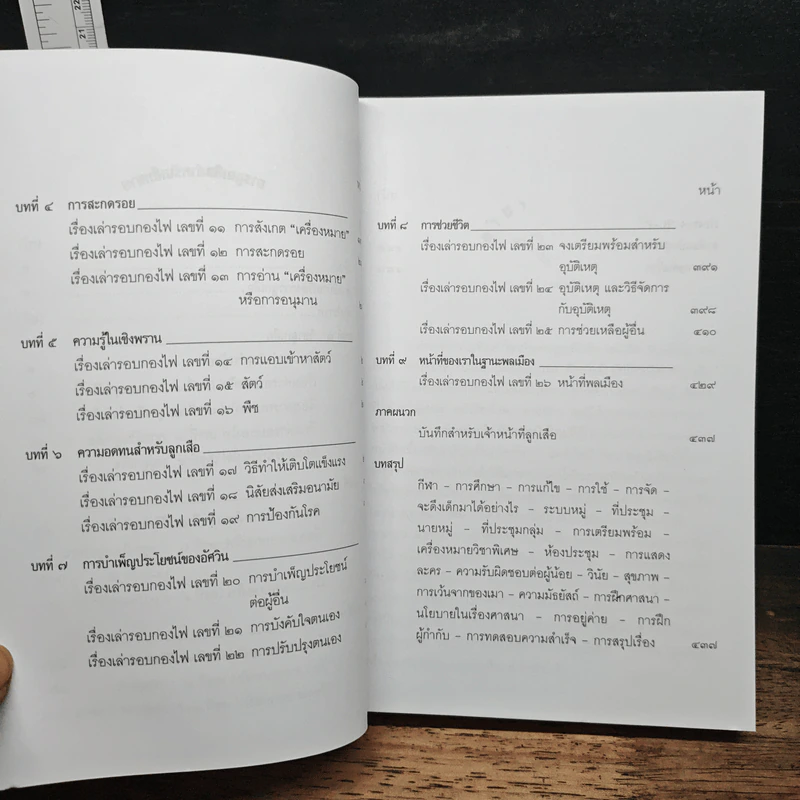 22
21
บทที่ ๔ การสะกดรอย
เรื่องเล่ารอบกองไฟ เลขที่ ๑๑ การสังเกต “เครื่องหมาย”
เรื่องเล่ารอบกองไฟ เลขที่ ๑๒ การสะกดรอย
เรื่องเล่ารอบกองไฟ เลขที่ ๑๓ การอ่าน “เครื่องหมาย”
หรือการอนุมาน
บทที่ ๕ ความรู้ในเชิงพราน
เรื่องเล่ารอบกองไฟ เลขที่ ๑๔ การแอบเข้าหาสัตว์
เรื่องเล่ารอบกองไฟ เลขที่ ๑๕ สัตว์
เรื่องเล่ารอบกองไฟ เลขที่ ๑๖ พืช
บทที่ ๖ ความอดทนสำหรับลูกเสือ
เรื่องเล่ารอบกองไฟ เลขที่ ๑๗ วิธีทำให้เติบโตแข็งแรง
เรื่องเล่ารอบกองไฟ เลขที่ ๑๘ นิสัยส่งเสริมอนามัย
เรื่องเล่ารอบกองไฟ เลขที่ ๑๙ การป้องกันโรค
บทที่ ๗ การบำเพ็ญประโยชน์ของอัศวิน
เรื่องเล่ารอบกองไฟ เลขที่ ๒๐ การบำเพ็ญประโยชน์
ต่อผู้อื่น
เรื่องเล่ารอบกองไฟ เลขที่ ๒๑ การบังคับใจตนเอง
เรื่องเล่ารอบกองไฟ เลขที่ ๒๒ การปรับปรุงตนเอง
หน้า
บทที่ ๘ การช่วยชีวิต
เรื่องเล่ารอบกองไฟ เลขที่ ๒๓ จงเตรียมพร้อมสำหรับ
อุบัติเหตุ ๓๙๑
เรื่องเล่ารอบกองไฟ เลขที่ ๒๔ อุบัติเหตุ และวิธีจัดการ
กับอุบัติเหตุ ๓๙๘
เรื่องเล่ารอบกองไฟ เลขที่ ๒๕ การช่วยเหลือผู้อื่น ๔๑๐
บทที่ ๙ หน้าที่ของเราในฐานะพลเมือง
เรื่องเล่ารอบกองไฟ เลขที่ ๒๖ หน้าที่พลเมือง ๔๒๙
ภาคผนวก
บันทึกสำหรับเจ้าหน้าที่ลูกเสือ ๔๓๗
บทสรุป
กีฬา – การศึกษา – การแก้ไข – การใช้ – การจัด –
จะดึงเด็กมาได้อย่างไร – ระบบหมู่ – ที่ประชุม –
นายหมู่ – ที่ประชุมกลุ่ม – การเตรียมพร้อม –
เครื่องหมายวิชาพิเศษ – ห้องประชุม – การแสดง
ละคร – ความรับผิดชอบต่อผู้น้อย – วินัย – สุขภาพ –
การเว้นจากของเมา – ความมัธยัสถ์ – การฝึกศาสนา –
นโยบายในเรื่องศาสนา – การอยู่ค่าย – การฝึก
ผู้กำกับ – การทดสอบความสำเร็จ – การสรุปเรื่อง ๔๓๗